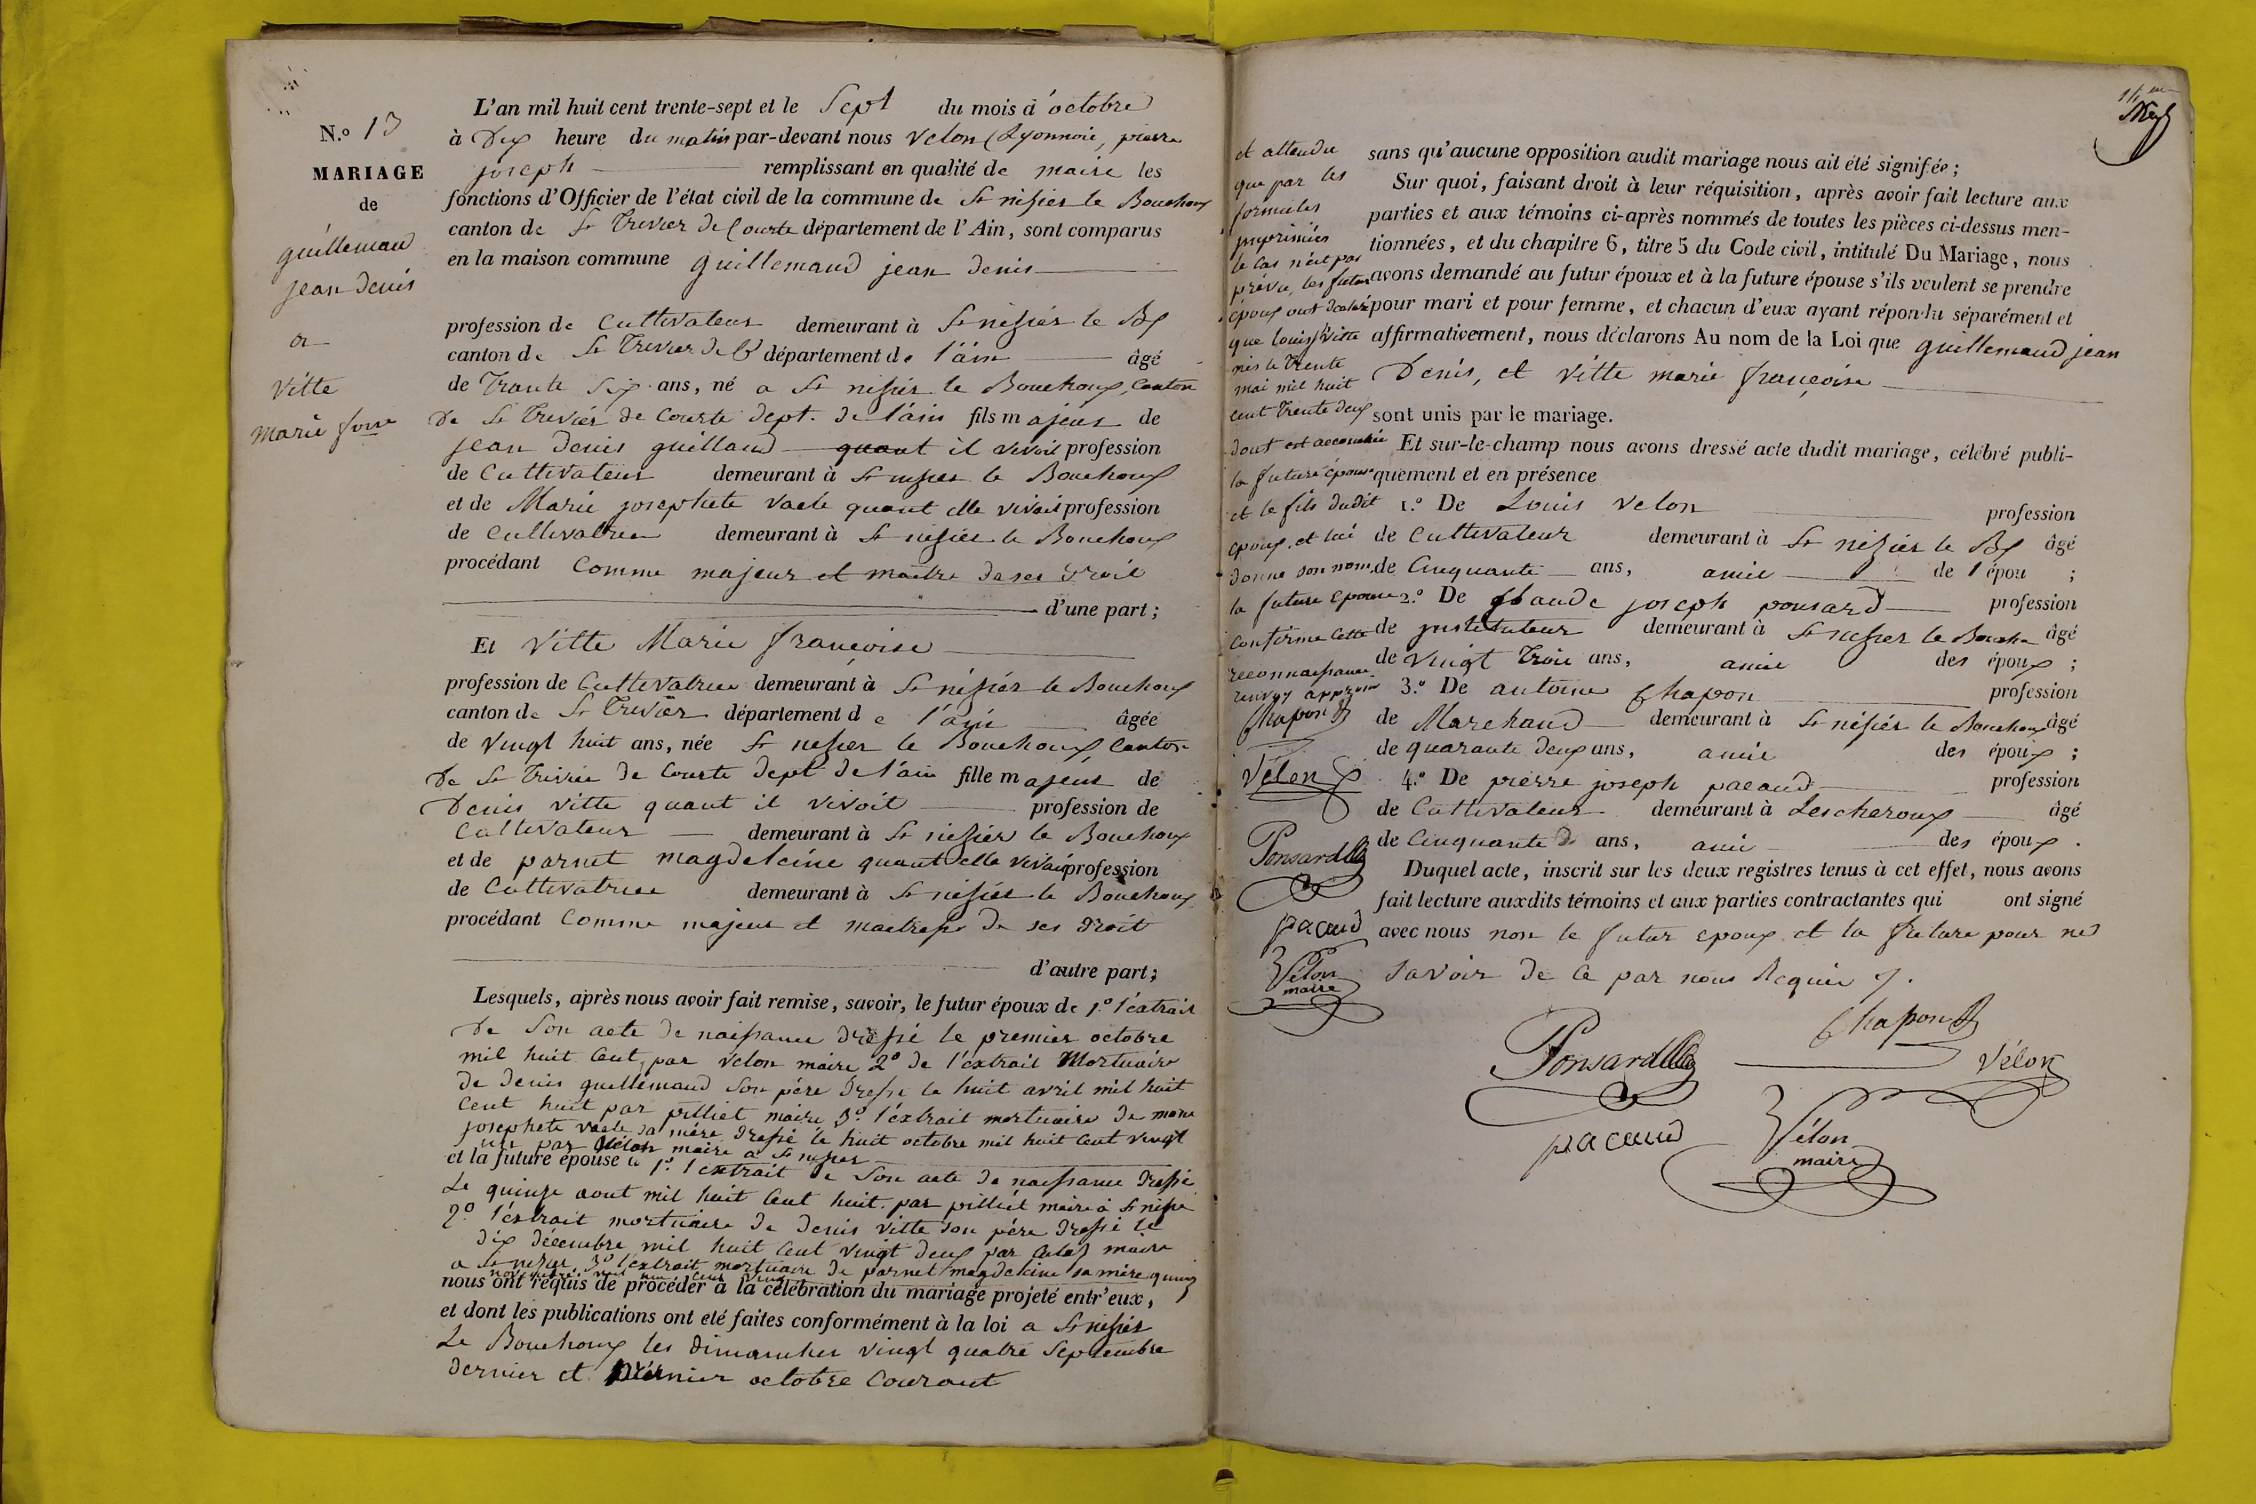 N.o 13
MARIAGE
de
guillemaud
jean denis
et
Vitte
marie f.oise
L'an mil huit cent trente-sept et le Sept du mois d'octobre
à Dix heure du matin par-devant nous Velon (Lyonnois, pierre
joseph remplissant en qualité de maire les
fonctions d'Officier de l'état civil de la commune de St nizier le Bouchoux
canton de St Trivier de Courte département de l'Ain, sont comparus
en la maison commune guillemaud jean denis
profession de Cultivateur demeurant à St nizier le Bx
canton de St Trivier de Ct département de l'ain âgé
de Trante Six ans, né a St nizier le Bouchoux, Canton
De St Trivier de Courte dept. de l'ain fils majeur de
jean denis guilland quant il vivoit profession
de Cultivateur demeurant à St nizier le Bouchoux
et de Marie josephete vacle quant elle vivait profession
de Cultivatrice demeurant à St nizier le Bouchoux
procédant Comme majeur et maitre de ses Droit
d'une part;
Et Vitte Marie françoise
profession de Cultivatrice demeurant à St nizier le Bouchoux
canton de St Trivier département de l'ain âgée
de vingt huit ans, née St nizier le Bouchoux Canton
De St Trivier de Courte dept de l'ain fille majeur de
Denis vitte quant il vivoit profession de
Cultivateur demeurant à St nizier le Bouchoux
et de parnet magdeleine quant elle vivait profession
de Cultivatrice demeurant à St nizier le Bouchoux
procédant Comme majeur et maitresse de ses Droit
d'autre part;
Lesquels, après nous avoir fait remise, savoir, le futur époux de 1.o l'extrait
De Son acte de naissance dressé le premier octobre
mil huit Cent, par velon maire 2o de l'extrait Mortuaire
de denis guillemaud Son père Dressé le huit avril mil huit
Cent huit par pilliet maire 3.o l'extrait mortuaire de marie
josephete vacle sa mère dressé le huit octobre mil huit Cent vingt
un par Velon maire a St nizier
et la future épouse de 1.o l'extrait de Son acte de naissance dressé
Le quinze aout mil huit Cent huit par pilliet maire à St nizier
2.o l'extrait mortuaire de denis vitte son père dressé le
dix décembre mil huit Cent vingt deux par maire
a St nizier 3o l'extrait mortuaire de parnet magdeleine sa mère quinze
novembre mil huit Cent vingt
nous ont requis de procéder à la célébration du mariage projeté entr'eux,
et dont les publications ont été faites conformément à la loi a St nizier
Le Bouchoux les dimanches vingt quatre Septembre
dernier et premier octobre Courant
et attendu
que par les
formules
imprimées
le Cas n'est pas
prévu, les futur
époux ont declaré
que louis Vitte
née le Trente
mai mil huit
cent Trente deux
dont est accouchée
la future épouse
et le fils dudit
époux et lui
donne son nom
la future épouse
Confirme Cette
reconnaissance
renvoy approuvé
Chapon
Vélon
Ponsard
pacaud
Vélon
maire
sans qu'aucune opposition audit mariage nous ait été signifiée;
Sur quoi, faisant droit à leur réquisition, après avoir fait lecture aux
parties et aux témoins ci-après nommés de toutes les pièces ci-dessus men-
tionnées, et du chapitre 6, titre 5 du Code civil, intitulé Du Mariage, nous
avons demandé au futur époux et à la future épouse s'ils veulent se prendre
pour mari et pour femme, et chacun d'eux ayant répondu séparément et
affirmativement, nous déclarons Au nom de la Loi que guillemaud jean
Denis, et vitte marie françoise
sont unis par le mariage.
Et sur-le-champ nous avons dressé acte dudit mariage, célébré publi-
quement et en présence
1.o De Louis velon profession
de Cultivateur demeurant à St nizier le Bx âgé
de Cinquante ans, amie de l'épou ;
2.o De Claude joseph ponsard profession
de instituteur demeurant à St nizier le Boucho âgé
de vingt Trois ans, amie des époux ;
3.o De antoine Chapon profession
de Marchand demeurant à St nizier le Bouchoux âgé
de quarante deux ans, amie des époux ;
4.o De pierre joseph pacaud profession
de Cultivateur demeurant à Lescheroux âgé
de Cinquante ans, amie des époux .
Duquel acte, inscrit sur les deux registres tenus à cet effet, nous avons
fait lecture auxdits témoins et aux parties contractantes qui ont signé
avec nous non le futur epoux et la future pour ne
savoir de Ce par nous Requis
Chapon
Ponsard
Vélon
pacaud
Vélon
maire